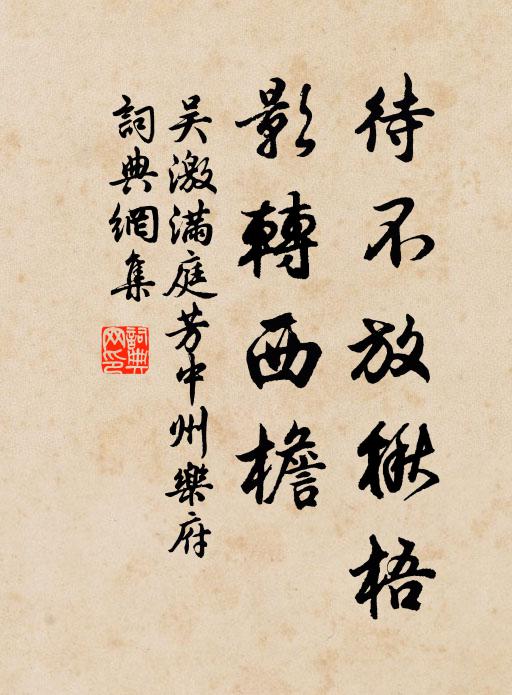 待不放楸梧
影轉西檐
吴激滿庭芳中州樂府
詞典網集
詞典網印